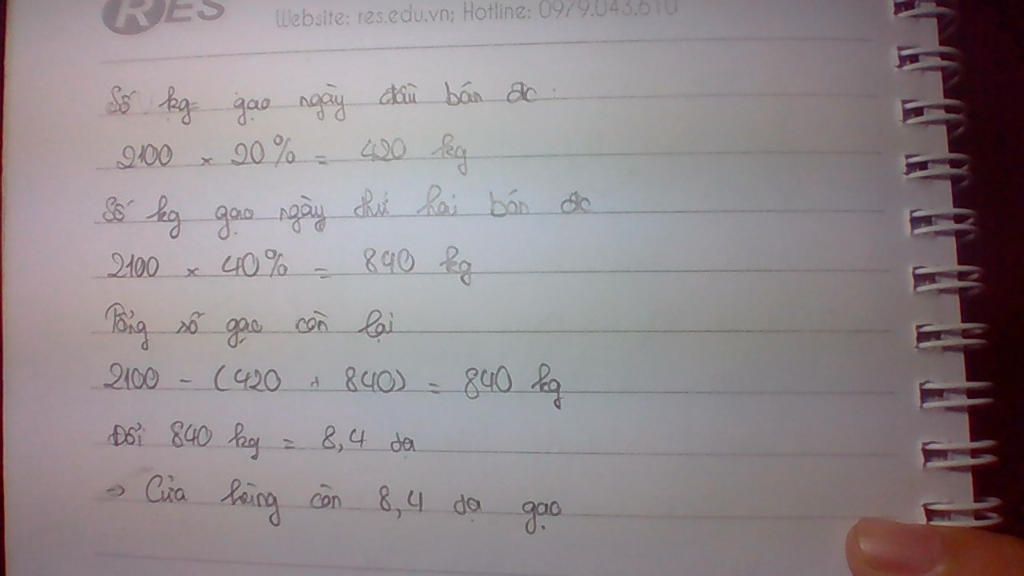 RES
Website: res.edu.vn; Hotline: 0979.043.610
Số kg gạo ngày đầu bán đc:
2100 × 20% = 420 kg
Số kg gạo ngày thứ hai bán đc
2100 × 40% = 840 kg
Tổng số gạo còn lại
2100 - (420 + 840) = 840 kg
Đổi 840 kg = 8,4 dạ
⇒ Cửa hàng còn 8,4 dạ gạo